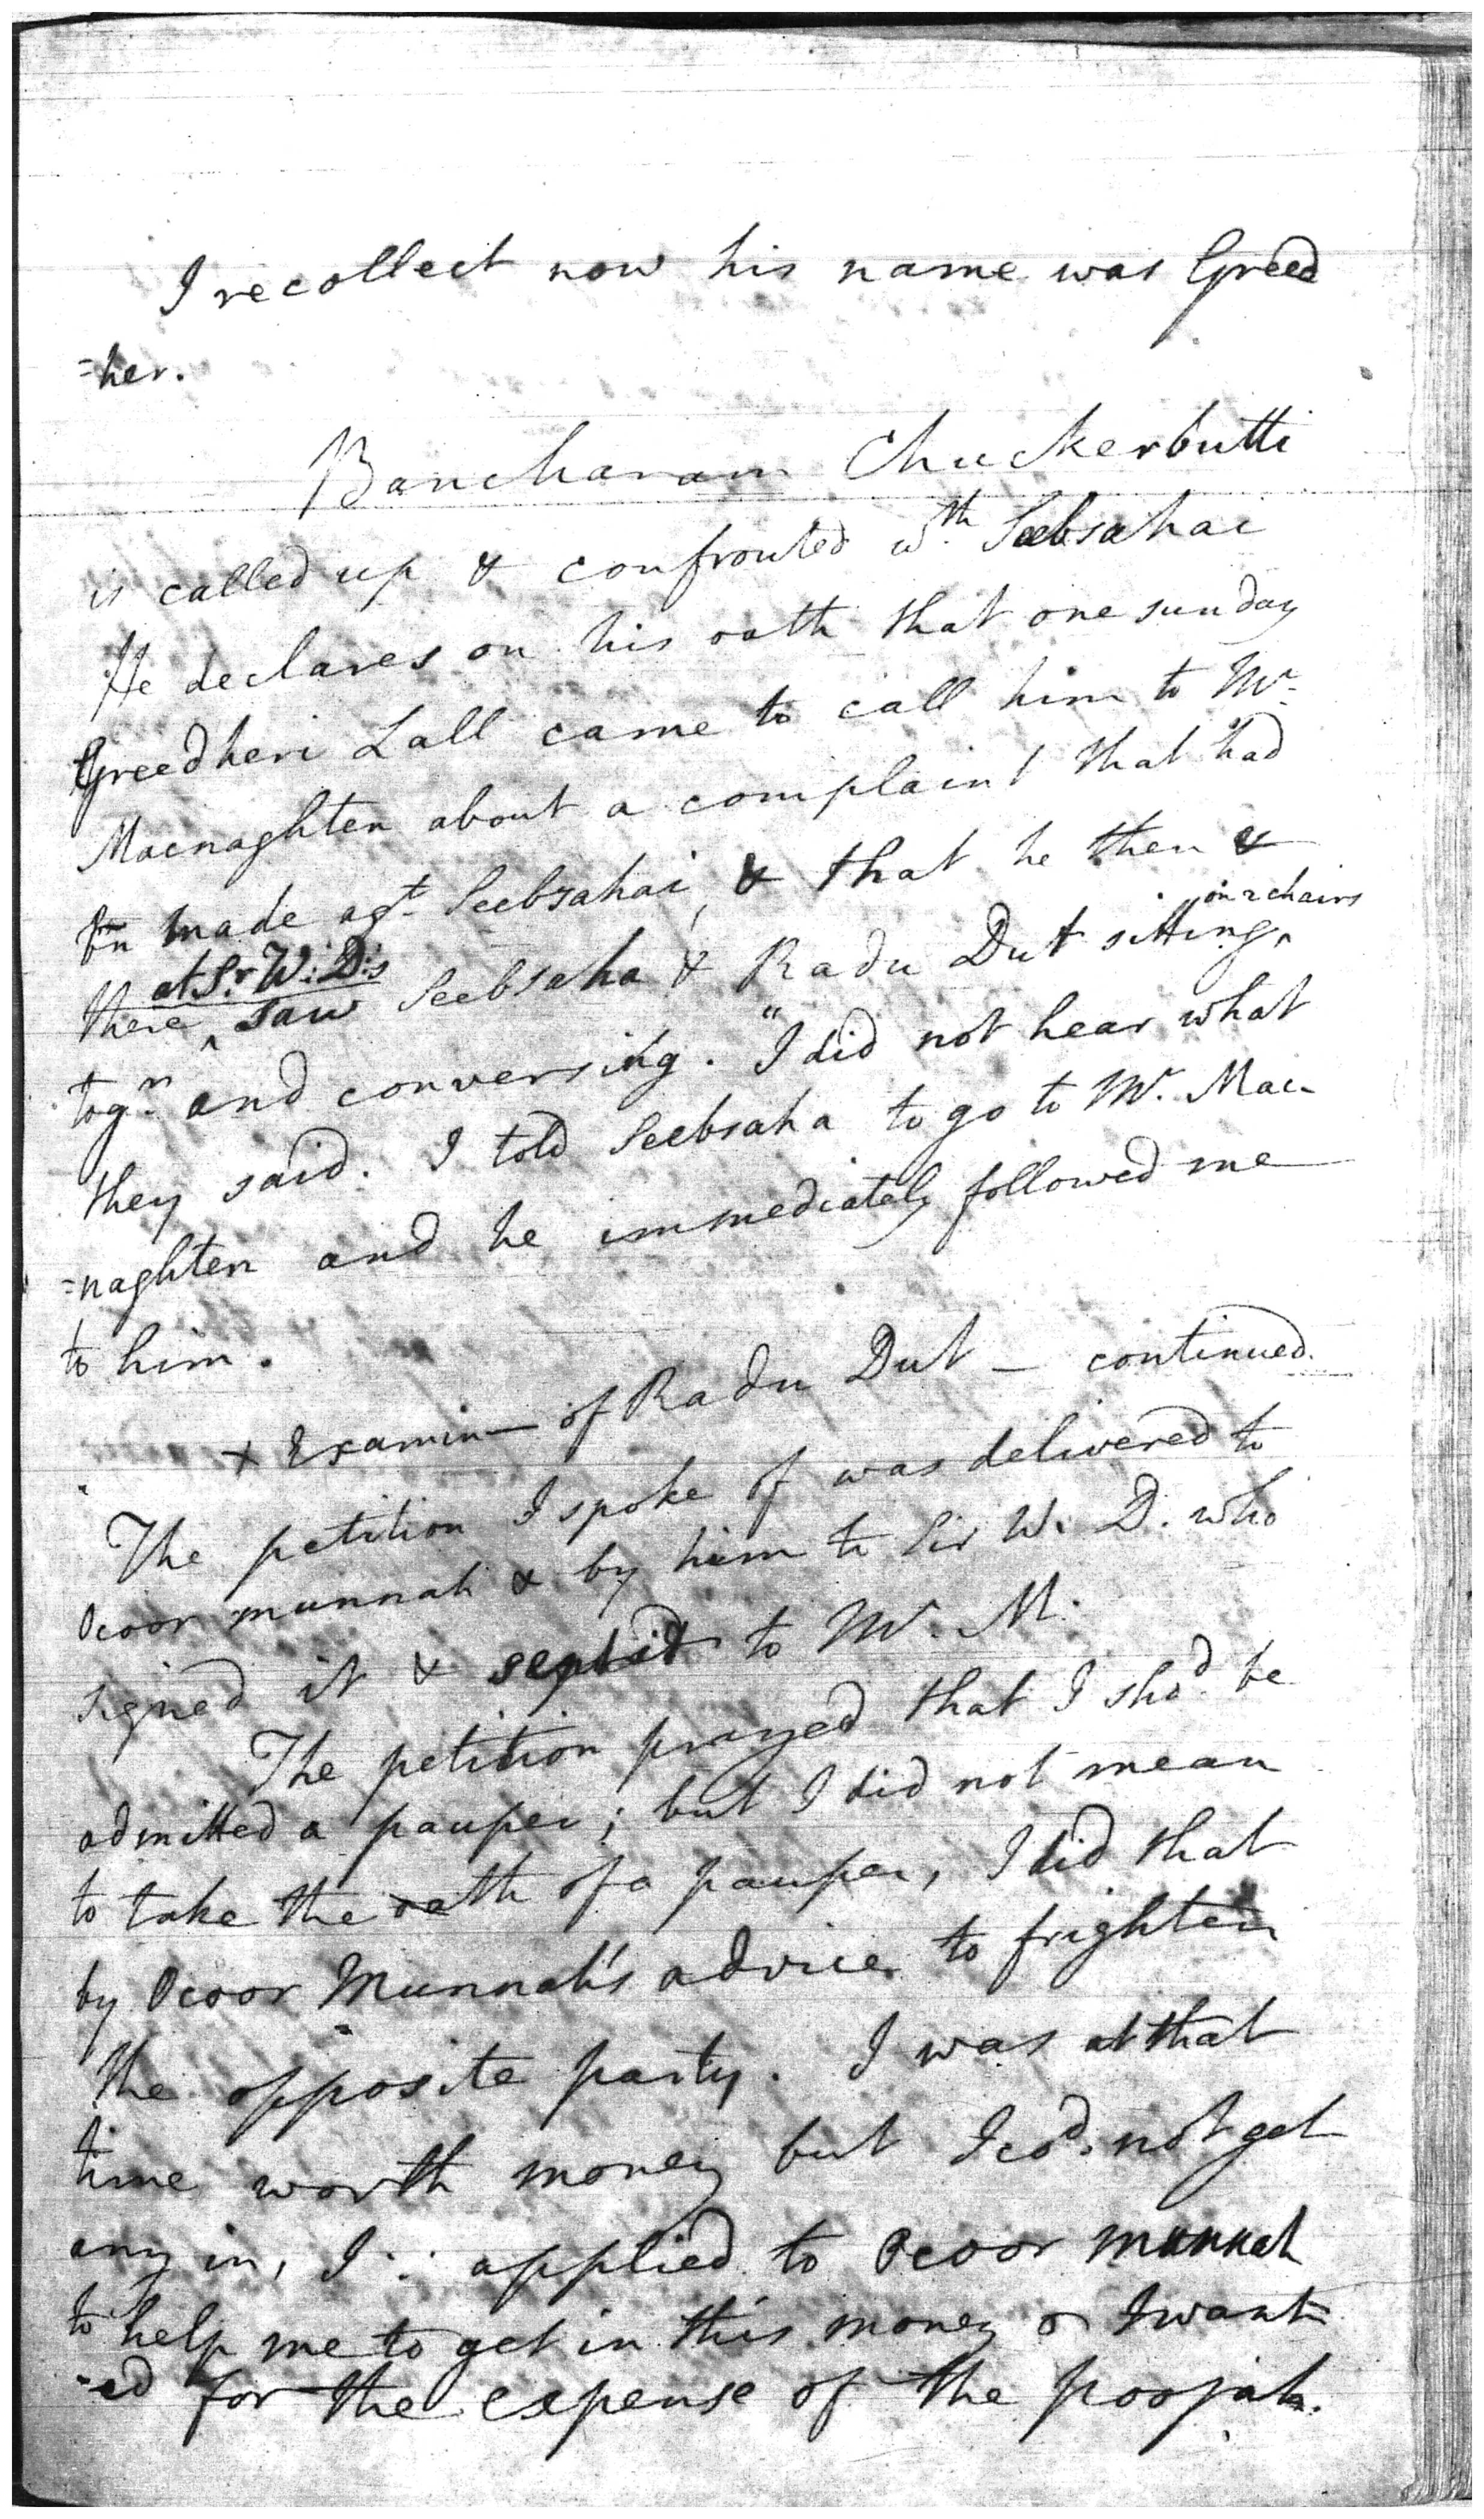 I recollect now his name was Greed
=her.
Bancharam Chuckerbutti
is called up & confronted wth. Seebsahai
He declares on his oath that one sunday
Greedheri Lall came to call him to Mr.
Macnaghten about a complaint that had
bn made agt. Seebsahai, & that he then &
on 2 chairs
at Sr. W: D:s
there ^ saw Seebsaha & Radu Dut sitting ^
togr. and conversing. "I did not hear what
they said. I told Seebsaha to go to Mr. Mac-
=naghten and he immediately followed me
to him.
+ Examin— of Radu Dut — continued.
The petition I spoke of was delivered to
Ocoor munnah & by him to Sir W. D. who
signed it & to Mr. M.
The petition prayed that I shod. be
admitted a pauper; but I did not mean
to take the oath of a pauper, I did that
by Ocoor Munnah's advice to frighten
the opposite party. I was at that
time worth money but I cod. not get
any in, I ∴ applied to Ocoor munnah
to help me to get in this money & I want=
=ed for the expense of the poojah.